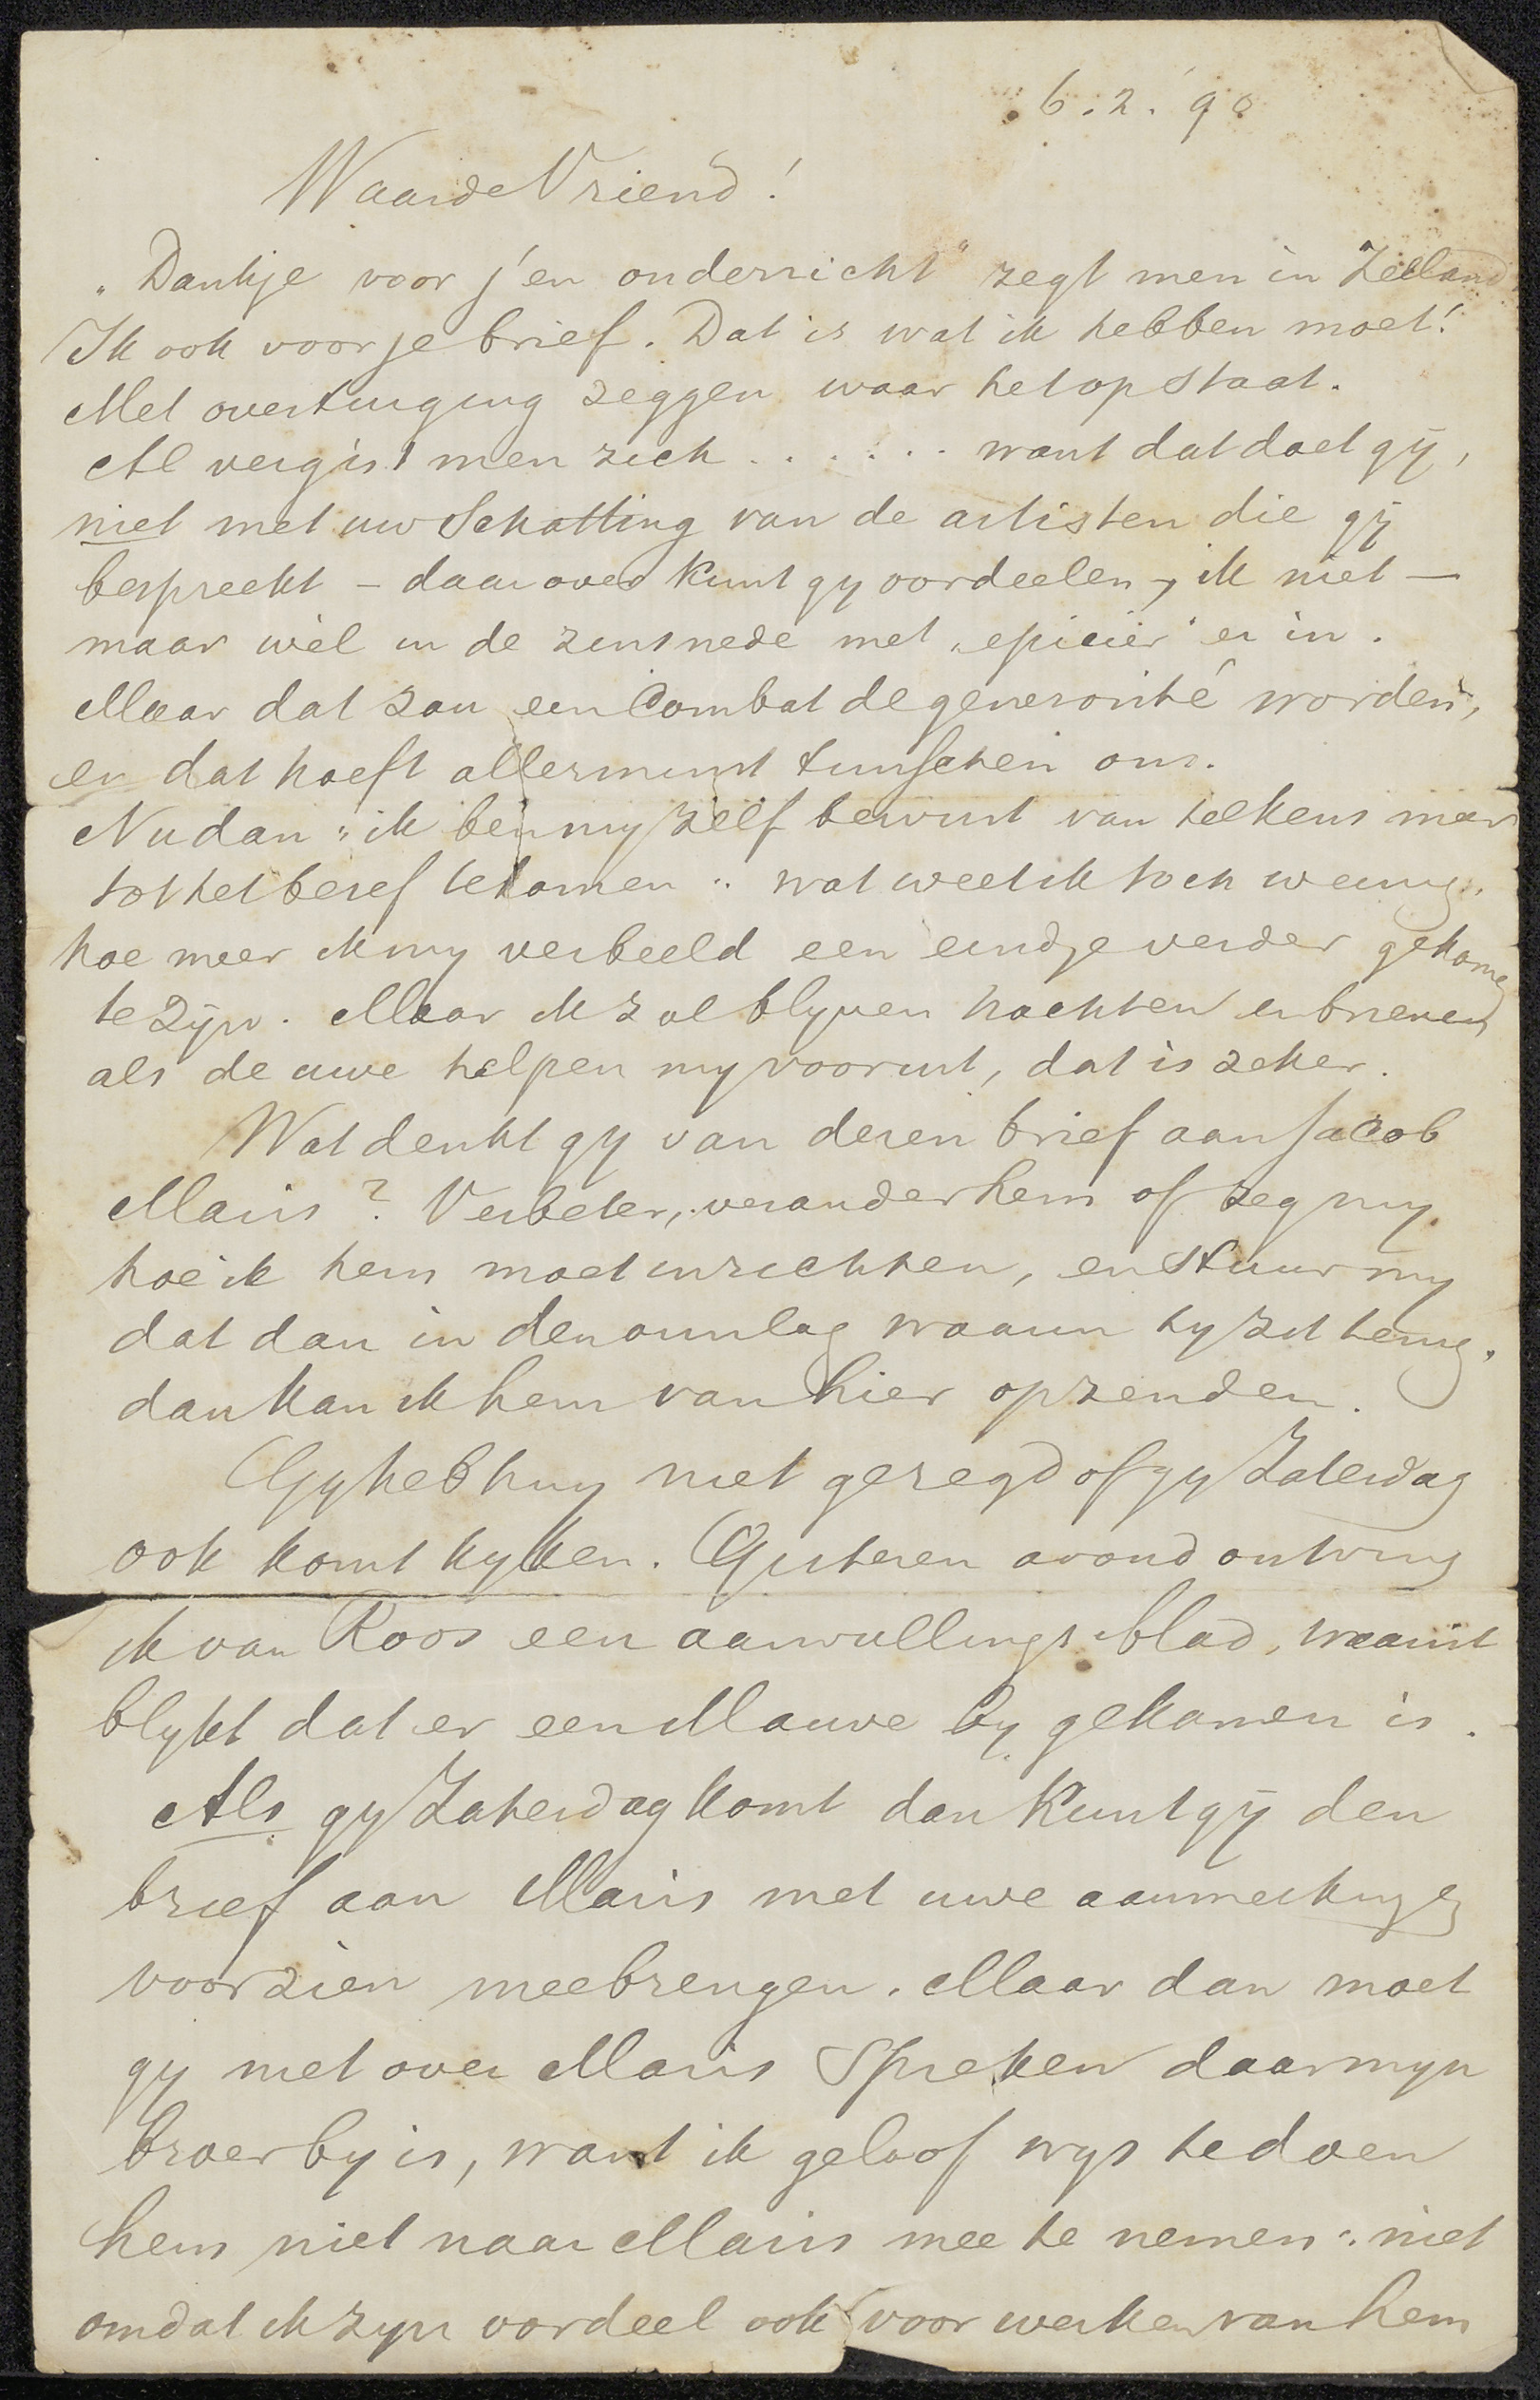 6.2.'90
Waarde Vriend!
„Dankje voor j'en onderricht" zegt men in Zeeland
Ik ook voor je brief. Dat is wat ik hebben moet!
Met overtuiging zeggen waar het op staat.
Al vergist men zich ...... want dat doet gij,
niet met uw Schatting van de artisten die gij
bespreekt – daarover kunt gy oordeelen, ik niet –
maar wèl in de zinsnede met „epicier" er in.
Maar dat zou een Combat de generosité worden,
en dat hoeft allerminst tusschen ons.
Nu dan: ik ben my zelf bewust van telkens meer
tot het besef te komen: wat weet ik toch weinig,
hoe meer ik my verbeeld een eindje verder gekomen
te zijn. Maar ik zal blyven trachten en brieven
als de uwe helpen my vooruit, dat is zeker.
Wat denkt gy van dezen brief aan Jacob
Maris? Verbeter, verander hem of zeg my
hoe ik hem moet inrichten, en stuur my
dat dan in den omslag waarin hy zit terug,
dan kan ik hem van hier opzenden.
Gy hebt my niet gezegd of gy Zaterdag
ook komt kyken. Gisteren avond ontving
ik van Roos een aanvullings-blad, waaruit
blykt dat er een Mauve by gekomen is.
Als gy Zaterdag komt dan kunt gij den
brief aan Maris met uwe aanmerkingen
voorzien meebrengen. Maar dan moet
gy niet over Maris Spreken daar myn
broer by is, want ik geloof wys te doen
hem niet naar Maris mee te nemen: niet
omdat ik zyn oordeel ook voor werken van hem